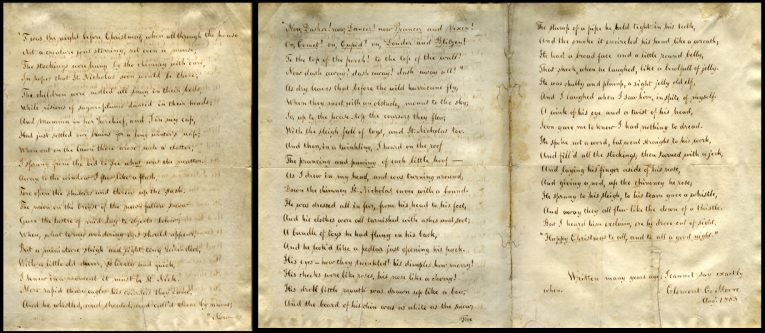 'Twas the night before Christmas, when all through the house
Not a creature was stirring, not even a mouse;
The stockings were hung by the chimney with care,
In hopes that St. Nicholas soon would be there;
The children were nestled all snug in their beds,
While visions of sugar-plums danced in their heads;
And Mamma in her 'kerchief, and I in my cap,
Had just settled our brains for a long winter's nap;
When out on the lawn there arose such a clatter,
I sprang from the bed to see what was the matter.
Away to the window I flew like a flash,
Tore open the shutters and threw up the sash.
The moon on the breast of the new-fallen snow
Gave the lustre of mid-day to objects below,
When, what to my wondering eyes should appear,
But a miniature sleigh and eight tiny reindeer,
With a little old driver, so lively and quick,
I knew in a moment it must be St. Nick.
More rapid than eagles his coursers they came,
And he whistled, and shouted, and called them by name;
"Now
"Now, Dasher! now, Dancer! now, Prancer and Vixen!
On, Comet! on, Cupid! on, Donder and Blitzen!
To the top of the porch! to the top of the wall!
Now dash away! dash away! dash away all!"
As dry leaves that before the wild hurricane fly,
When they meet with an obstacle, mount to the sky;
So, up to the house-top the coursers they flew,
With the sleigh full of toys, and St. Nicholas too.
And then, in a twinkling, I heard on the roof
The prancing and pawing of each little hoof—
As I drew in my head, and was turning around,
Down the chimney St. Nicholas came with a bound.
He was dressed all in fur, from his head to his foot,
And his clothes were all tarnished with ashes and soot;
A bundle of toys he had flung on his back,
And he look'd like a pedlar just opening his pack.
His eyes—how they twinkled! his dimples how merry!
His cheeks were like roses, his nose like a cherry!
His droll little mouth was drawn up like a bow,
And the beard of his chin was as white as the snow;
The
The stump of a pipe he held tight in his teeth,
And the smoke it encircled his head like a wreath;
He had a broad face and a little round belly,
That shook, when he laughed, like a bowlfull of jelly.
He was chubby and plump, a right jolly old elf,
And I laughed when I saw him, in spite of myself.
A wink of his eye and a twist of his head,
Soon gave me to know I had nothing to dread.
He spoke not a word, but went straight to his work,
And fill'd all the stockings, then turned with a jerk,
And laying his finger aside of his nose,
And giving a nod, up the chimney he rose;
He sprang to his sleigh, to his team gave a whistle,
And away they all flew like the down of a thistle.
But I heard him exclaim, ere he drove out of sight,
"Happy Christmas to all, and to all a good night."
Written many years ago; I cannot say exactly
when. Clement C. Moore
1853